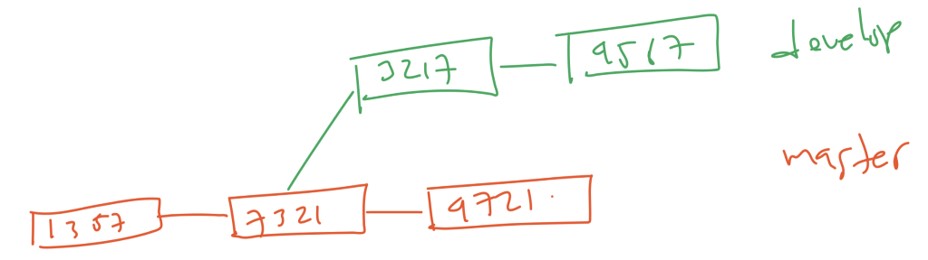 3217 9517 develop
master
1357 7321 9721